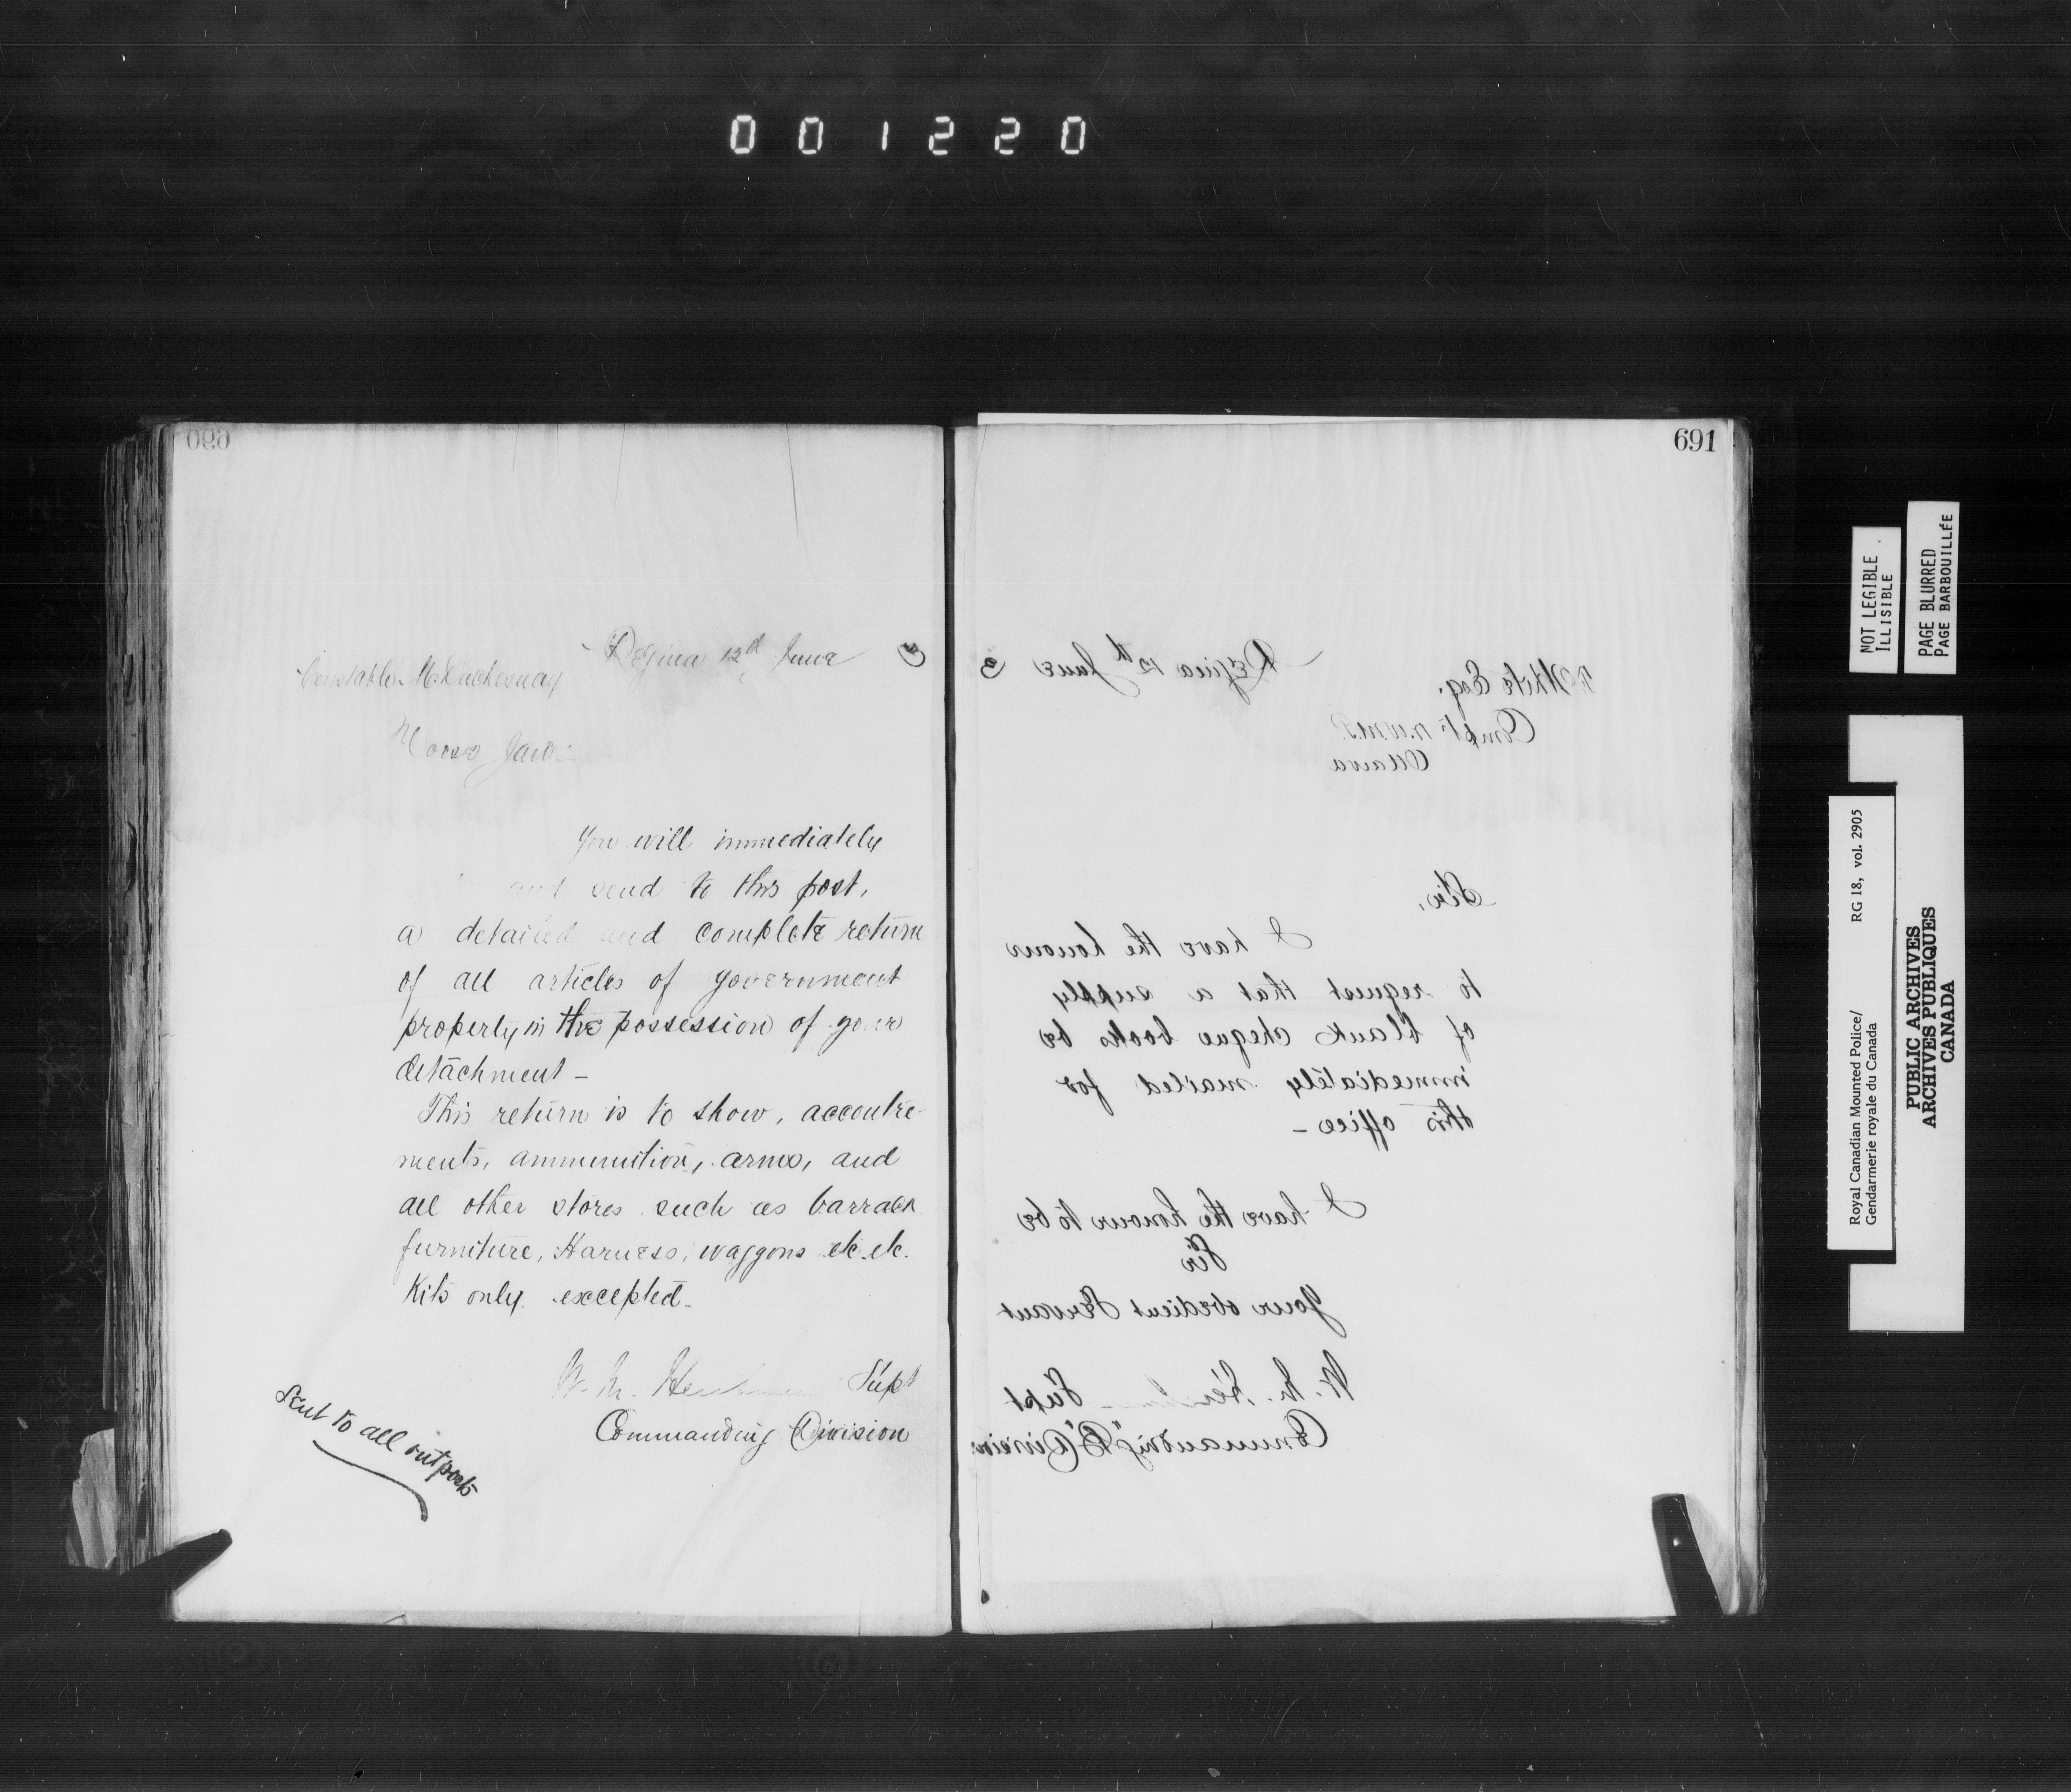 001220
690
Regina 12th June 3
Constable McDuchesnay
Moose Jaw
You will immediately
and send to this post,
a detailed and complete return
of all articles of government
property in the possession of your
detachment –
This return is to show, accoutre-
ments, ammunition, arms, and
all other stores such as barrack
furniture, Harness, waggons etc etc.
Kits only excepted –
W. M. Supt
Commanding Division
Sent to all outposts
691
Regina 12th June 3
White Esq.
Compt N.W.M.P.
Ottawa
Sir,
I have the honour
to request that a supply
of blank cheque books be
immediately mailed for
this office –
I have the honour to be
Sir
Your obedient Servant
W. M. Supt
Commanding "B" Division
NOT LEGIBLE
ILLISIBLE
PAGE BLURRED
PAGE BARBOUILLÉE
Royal Canadian Mounted Police/ RG 18, vol. 2905
Gendarmerie royale du Canada
PUBLIC ARCHIVES
ARCHIVES PUBLIQUES
CANADA